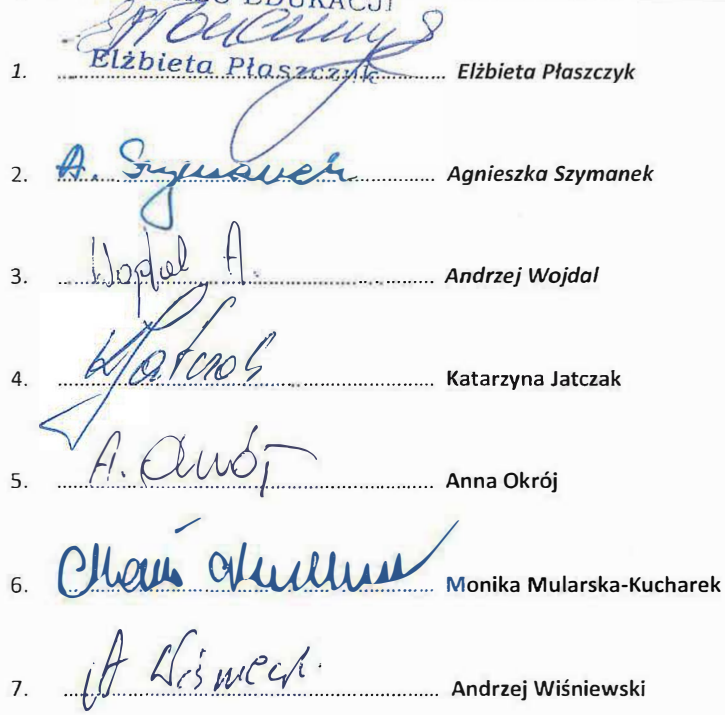 EDUKACJI
Elżbieta Płaszczyk
1. Elżbieta Płaszczyk
2. A. Szymanek Agnieszka Szymanek
3. Wojdal A. Andrzej Wojdal
4. KJatczak Katarzyna Jatczak
5. A. Okrój Anna Okrój
6. Monika Mularska-Kucharek
7. A Wiśniewski Andrzej Wiśniewski